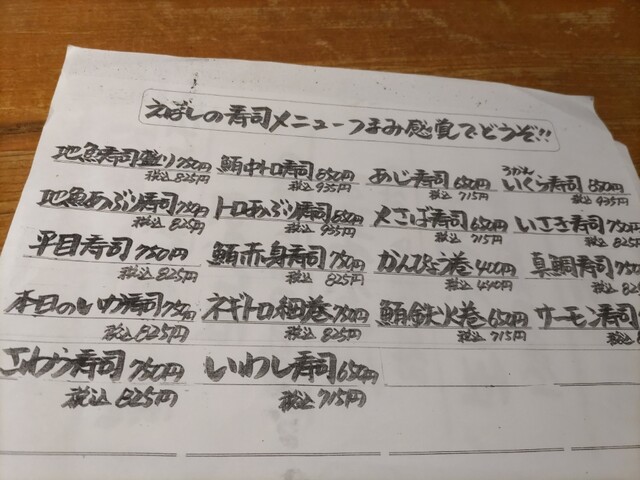 えぼしの寿司メニューつまみ感覚でどうぞ!!
地魚寿司盛り750円 鮪中トロ寿司850円 あじ寿司650円 いくら寿司850円
税込825円 税込935円 税込715円 税込935円
地魚あぶり寿司750円 トロあぶり寿司850円 〆さば寿司650円 いさき寿司750
税込825円 税込935円 税込715円 税込825円
平目寿司750円 鮪赤身寿司750円 かんぴょう巻400円 真鯛寿司750
税込825円 税込825円 税込440円 税込825
本日の寿司750円 ネギトロ細巻750円 鮪鉄火巻650円 サーモン寿司
税込825円 税込825円 税込715円 税込
さわら寿司750円 いわし寿司650円
税込825円 税込715円